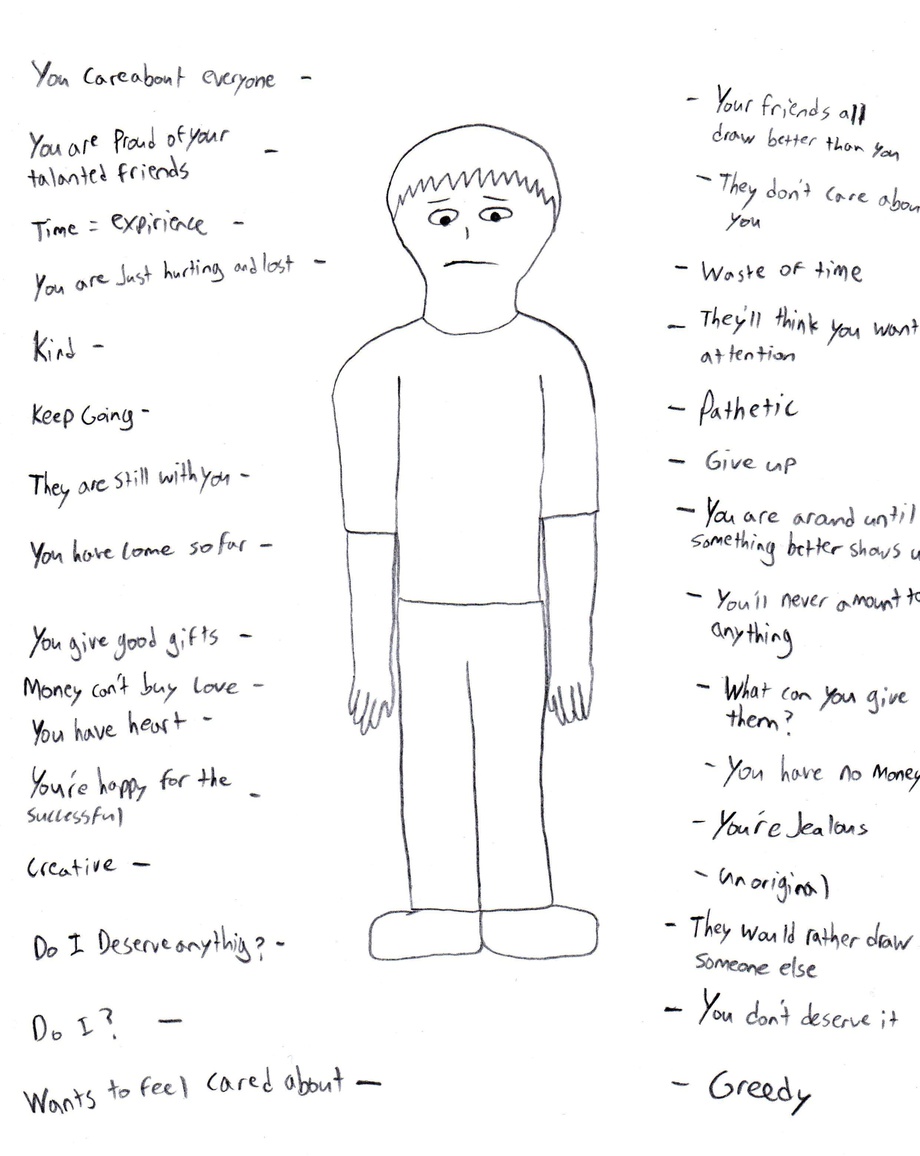 You Care about everyone -
You are Proud of your -
talanted friends
Time = expirience -
You are Just hurting and lost -
Kind -
Keep Going -
They are still with you -
You have come so far -
You give good gifts -
Money can't buy love -
You have heart -
You're happy for the -
successful
Creative -
Do I Deserve anythig? -
Do I? -
Wants to feel cared about -
- Your friends all
draw better than you
- They don't care abou
you
- Waste of time
- They'll think you want
attention
- Pathetic
- Give up
- You are around until
something better shows u
- You'll never amount to
anything
- What can you give
them?
- You have no Money
- You're Jealous
- unoriginal
- They would rather draw
someone else
- You don't deserve it
- Greedy